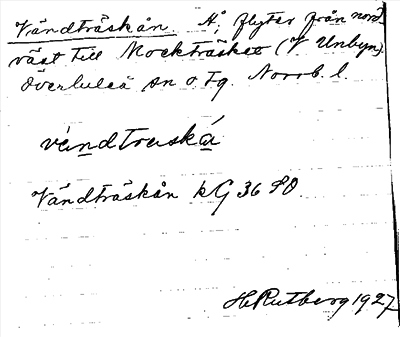 Vändträskån. Å, flyter från nord-
väst till Mockträsket (V Unbyn).
Överluleå sn o tg. Norrb. l.
vándtraská
Vändträskån kG 36 SO
H. Rutberg 1927